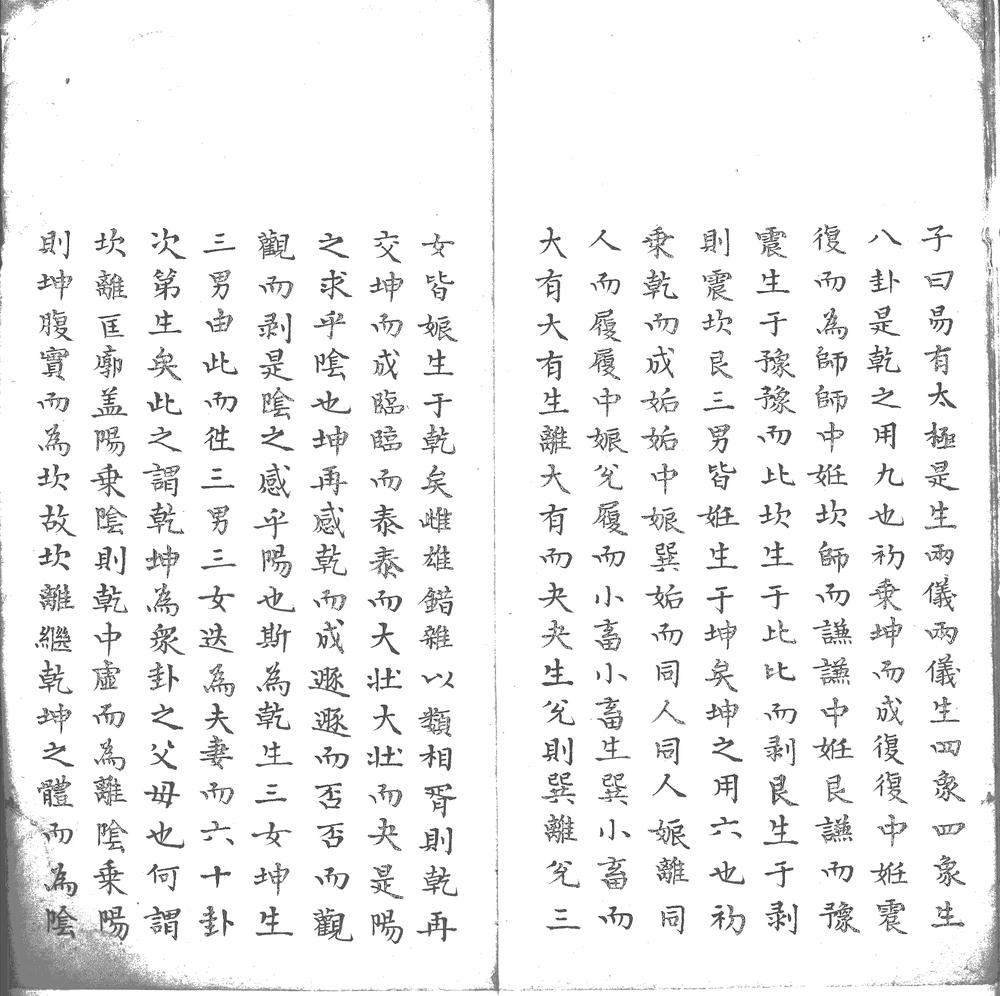 子曰易有太極是生兩儀兩儀生四象四象生
八卦是乾之用九也初乘坤而成復復中姙震
復而為師師中姙坎師而謙謙中姙艮謙而豫
震生于豫豫而比坎生于比比而剥艮生于剥
則震坎艮三男皆姙生于坤矣坤之用六也初
乘乾而成姤姤中娠巽姤而同人同人娠離同
人而履履中娠兊履而小畜小畜生巽小畜而
大有大有生離大有而夬夬生兊則巽離兊三
女皆娠生于乾矣雌雄錯雜以類相胥則乾再
交坤而成臨臨而泰泰而大壯大壯而夬是陽
之求乎陰也坤再感乾而成遯遯而否否而觀
觀而剥是陰之感乎陽也斯為乾生三女坤生
三男由此而徃三男三女迭為夫妻而六十卦
次第生矣此之謂乾坤為衆卦之父母也何謂
坎離匡廓盖陽乘陰則乾中虛而為離陰乘陽
則坤腹實而為坎故坎離繼乾坤之體而為陰